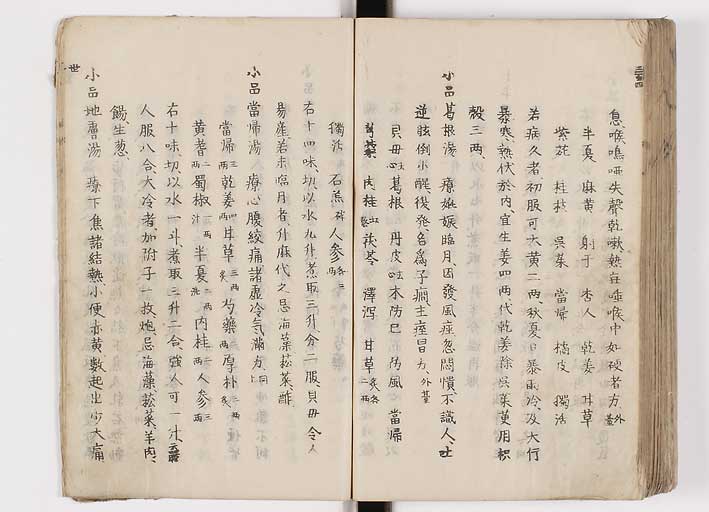 息喉嗚啞失聲乾嗽熱在唾喉中如硬者方 外臺
半夏 麻黄 射干 杏人 乾姜 甘草
紫苑 桂枝 吳茱 當帰 橘皮 獨活
若病久者初服可大黄二兩秋夏月暴雨冷及大行
暴寒熱伏於内宜生姜四兩代乾姜除吳茱萸用枳
殼三兩
小品葛根湯 療妊娠臨月因發風痙忽悶憒不識人吐
逆眩倒小醒復発名為子癇主痙冒方 外臺
貝母 葛根 丹皮 木防已 防風 當帰
芎藭 肉桂 茯苓 澤瀉 甘草
獨活 石羔 人參
右十四味切以水九升煮取三升分二服貝母令人
易産若未臨月者升麻代之忌海藻菘菜酢
小品當帰湯 療心腹絞痛諸虚冷氣滿方
當帰 三兩 乾姜 四兩 甘草 三兩 芍藥 厚朴
黄耆 蜀椒 半夏 肉桂 人參
右十味切以水一斗煮取三升二合強人可一升
人服八合大冷者加附子一枚炮忌海藻菘菜羊肉
餳生葱
小品地膚湯 療下焦諸結熱小便赤黄數起出少大痛